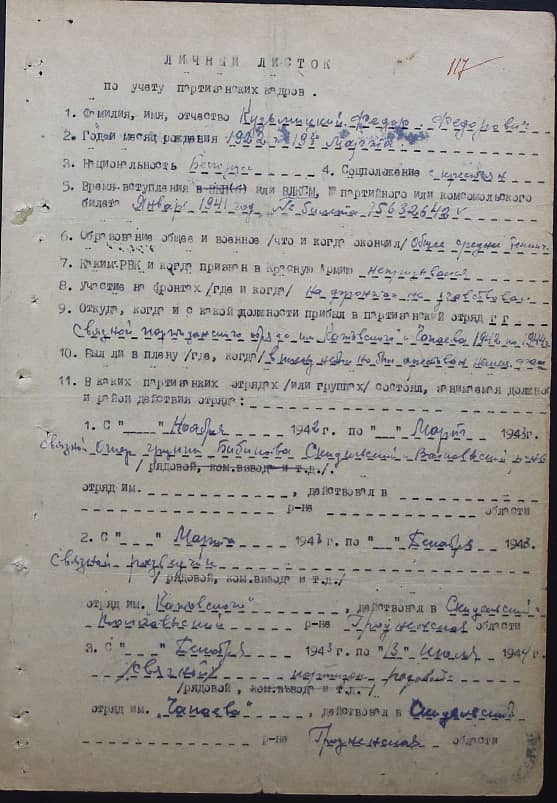 117
ЛИЧНЫЙ ЛИСТОК
по учету партизанских кадров.
1. Фамилия, имя, отчество Федор Федорович
2. Год и месяц рождения 1922 г. 19 Марта
3. Национальность Белорус 4. Соцположение
5. Время вступления в ВКП(б) или ВЛКСМ, № партийного или комсомольского
билета Январь 1941 год № билета 15632642
6. Образование общее и военное /что и когда окончил/ Общее среднее
7. Каким РВК и когда призван в Красную Армию непризывался
8. Участие на фронтах /где и когда/ на фронтах не участвовал
9. Откуда, когда и с какой должности прибыл в партизанский отряд
Связной партизанского отряда им. Котовского и Чапаева 1942 по 1944г.
10. Был ли в плену /где, когда/ в плену не был
11. В каких партизанских отрядах /или группах/ состоял, занимаемая должнос
и район действия отряда:
1. С "___" Ноября 1942 г. по "___" Март 1943г.
Связной Опер группы Бибикова Скидельский
/рядовой, ком.взвода и т.д./
отряд им. , действовал в
р-на области
2. С "___" Марта 1943 г. по "__" Декабря 1943.
Связной разведчик
/рядовой, ком.взвода и т.д./
отряд им. Котовского" , действовал в Скидельский
р-на Гродненская области
3. С "___" Декабря 1943 г. по "13" июля 1944 г.
/связной/ рядовой
/рядовой, ком.взвода и т.д./
отряд им. "Чапаева" , действовал в Скидельский
р-на Гродненская области